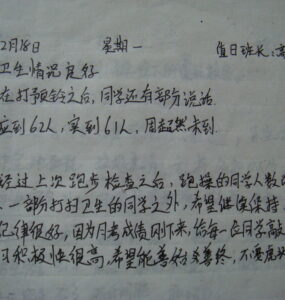 2月18日 星期一 值日班长:
卫生情况良好
在打预铃之后,同学还有部分说话
应到62人,实到61人,周超然未到.
经过上次跑步检查之后,跑操的同学人数
一部分打扫卫生的同学之外,希望继续保持.
纪律很好,因为月考成绩刚下来,给每一位同学敲
习积极性很高,希望能善始善终,不要虎